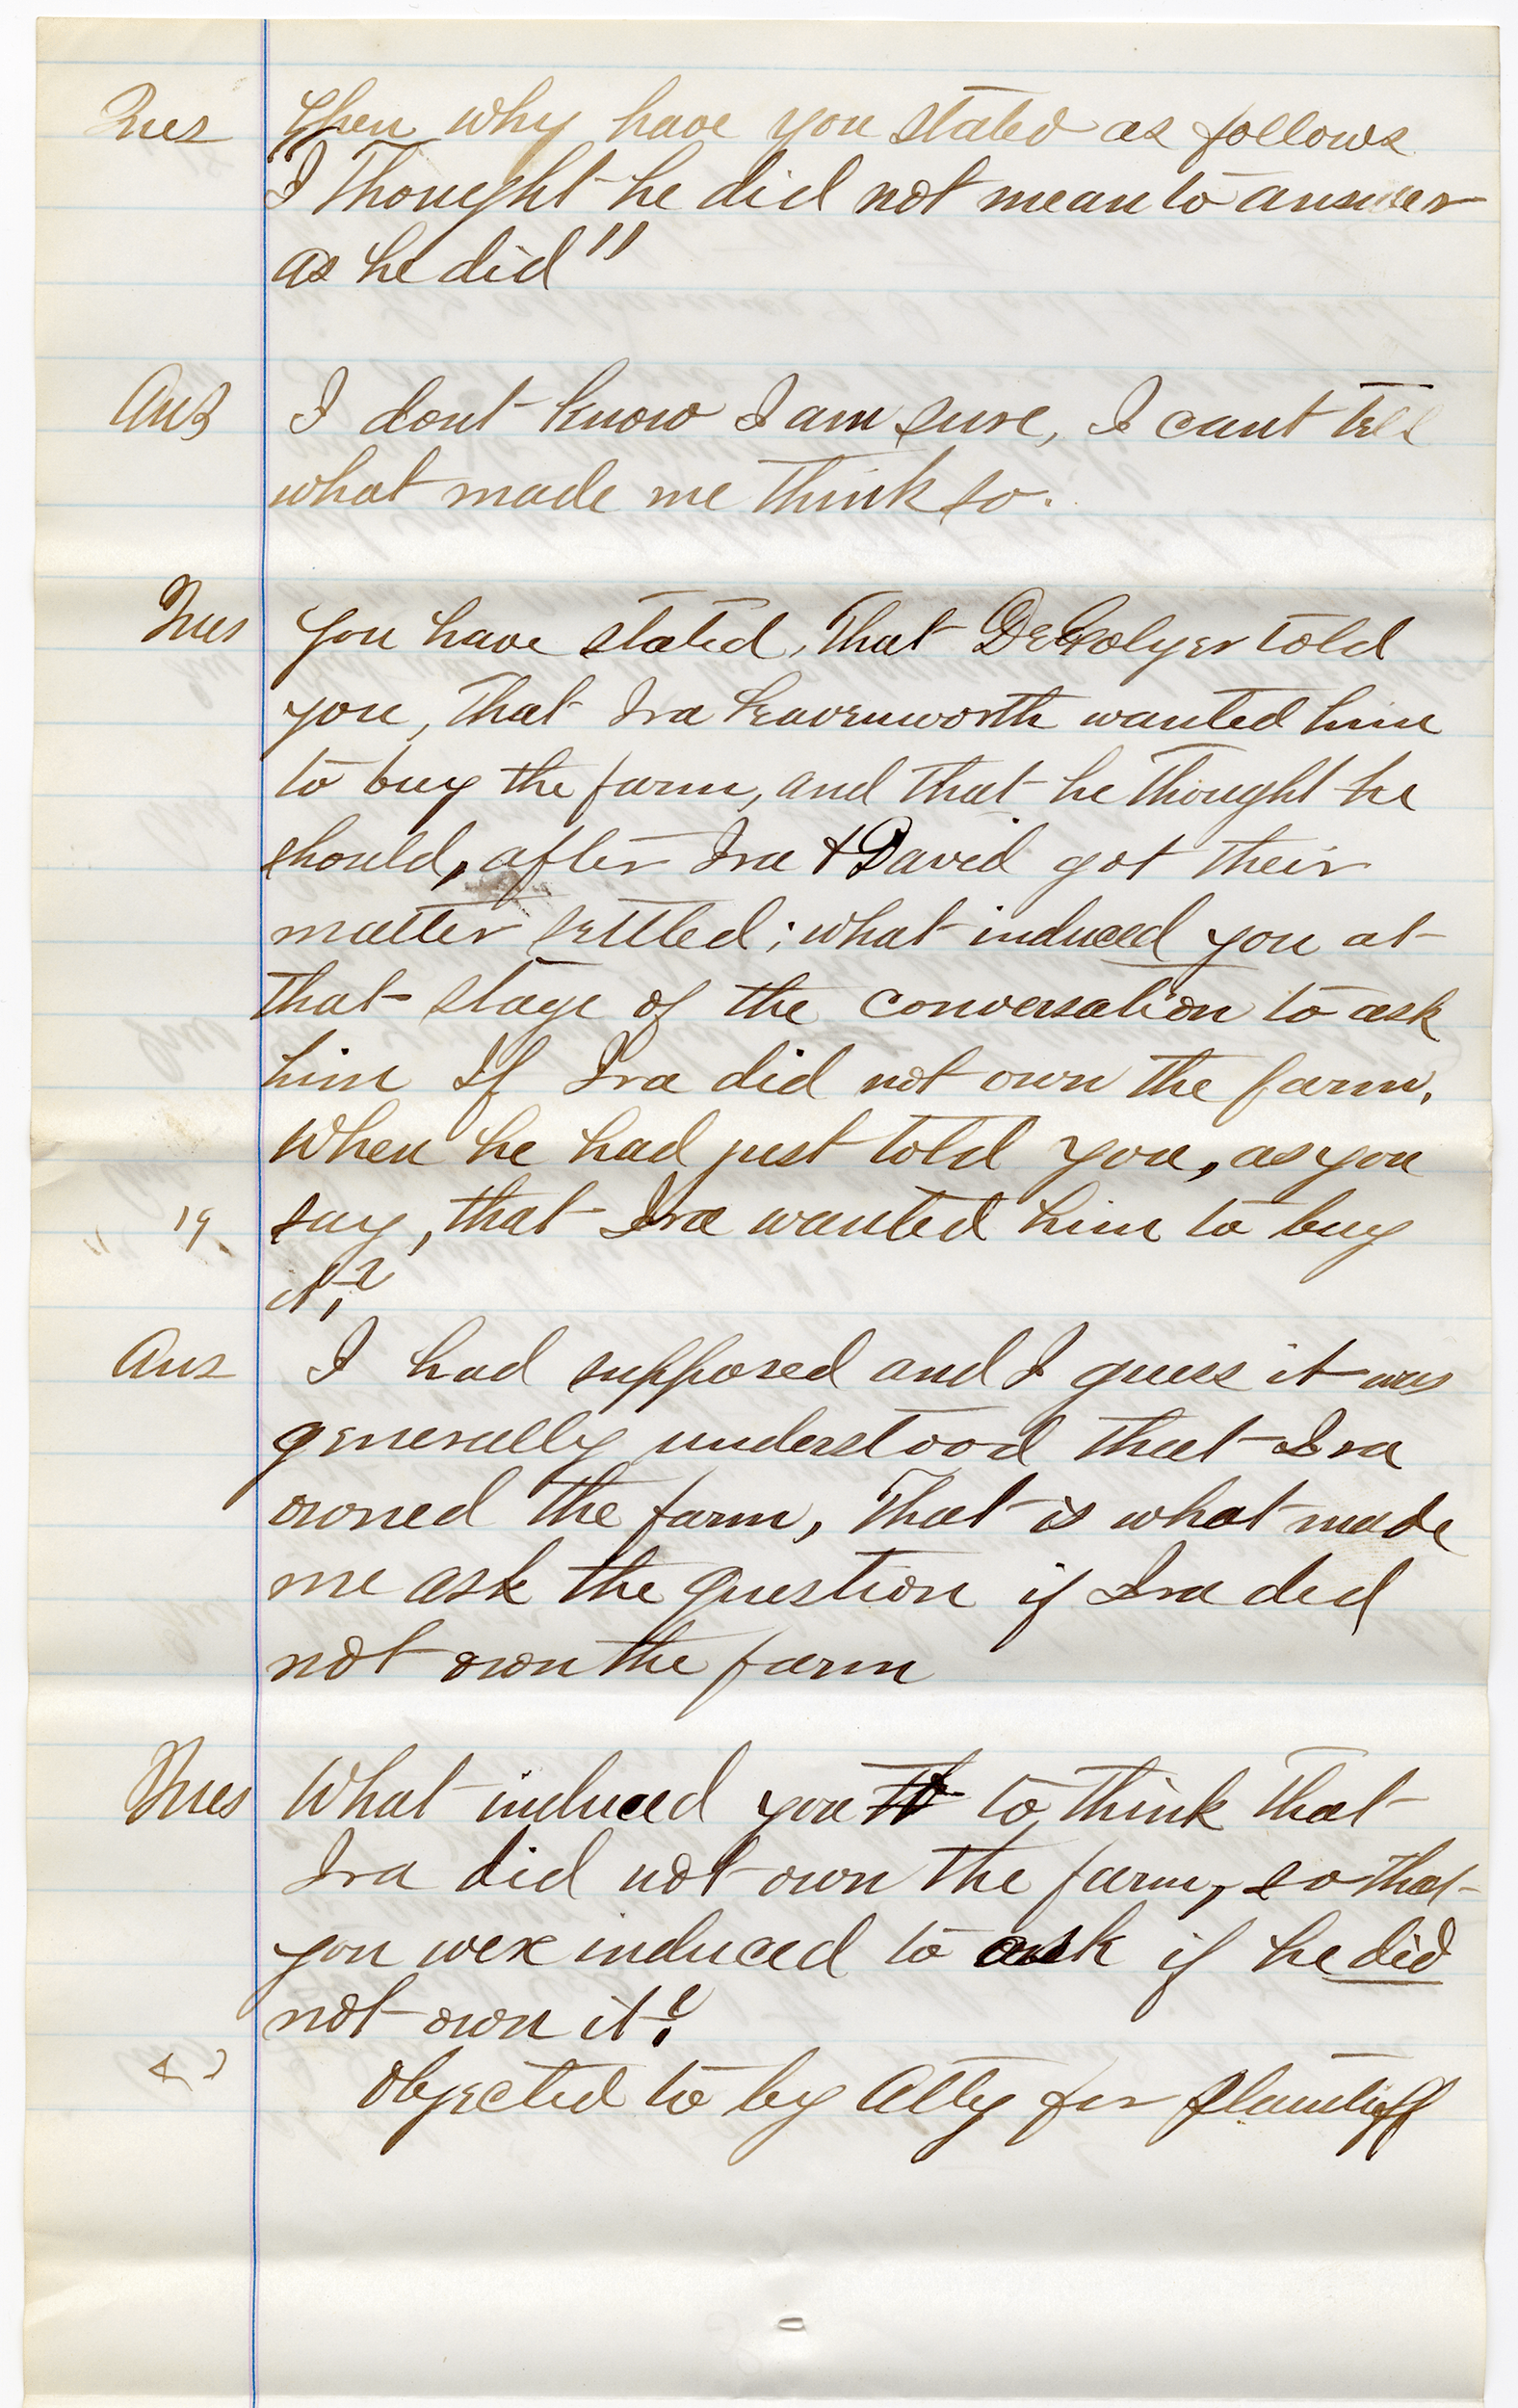 Ques Then why have you stated as follows
"I Thought he did not mean to answer
as he did"
Ans I dont know I am sure, I cant tell
what made me think so.
Ques You have stated, That DeGolyer told
you, that Ira Leavenworth wanted him
to buy the farm, and that he thought he
should, after Ira & David got their
matter settled; what induced you at
that stage of the conversation to ask
him If Ira did not own the farm,
When he had just told you, as you
" 19 say, that Ira wanted him to buy
it?
Ans I had supposed and I guess it was
generally understood that Ira
owned the farm, That is what made
me ask the question if Ira did
not own the farm
Ques What induced you to think that
Ira did not own the farm, so that
you were induced to ask if he did
not own it?
Objected to by Atty for Plaintiff